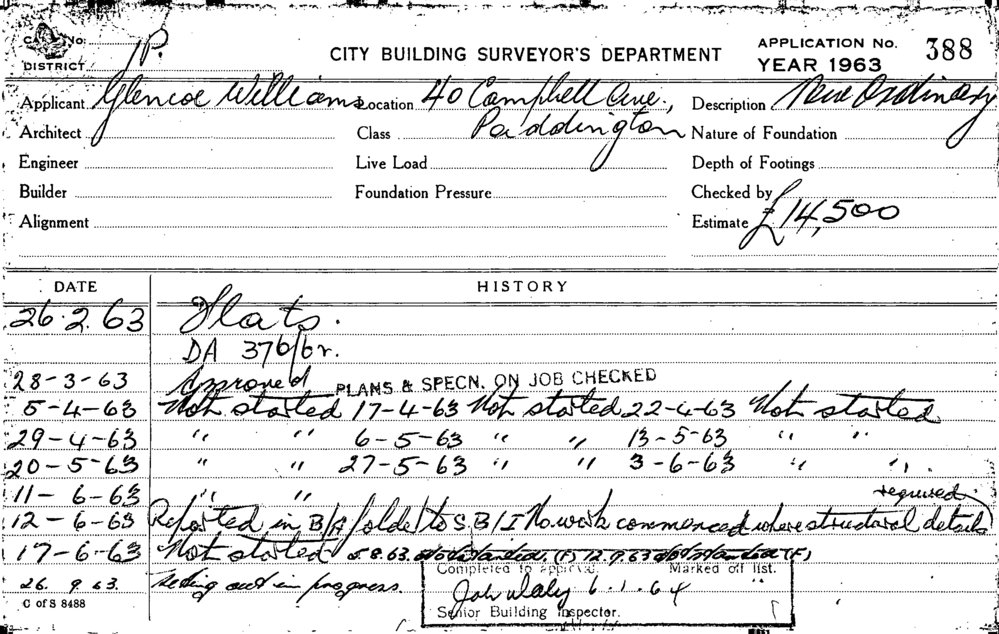 CITY BUILDING SURVEYOR'S DEPARTMENT APPLICATION No. 388
DISTRICT JP. YEAR 1963
Applicant Glencoe Williams Location 40 Campbell Ave., Description New Ordinary
Architect Class Paddington Nature of Foundation
Engineer Live Load Depth of Footings
Builder Foundation Pressure Checked by
Alignment Estimate £14,500
DATE HISTORY
26.2.63 Flats.
DA 376/62.
28-3-63 Approved PLANS & SPECN. ON JOB CHECKED
5-4-63 Not started 17-4-63 Not started 22-4-63 Not started
29-4-63 " " 6-5-63 " " 13-5-63 " "
20-5-63 " " 27-5-63 " " 3-6-63 " "
11-6-63 " " required
12-6-63 Reported in B/A folder to S.B/I No work commenced where structural details
17-6-63 Not started 5.8.63. Not started. (F) 12.9.63 Not started (F)
26.9.63. Setting out in progress. Completed to approval. Marked off list.
John Daly 6.1.64 "
C of S 8488 Senior Building Inspector.